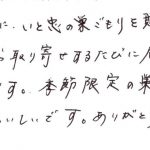 に、いと忠の巣ごもりを
取り寄せするたびに
す。季節限定の巣
いしいです。ありがと